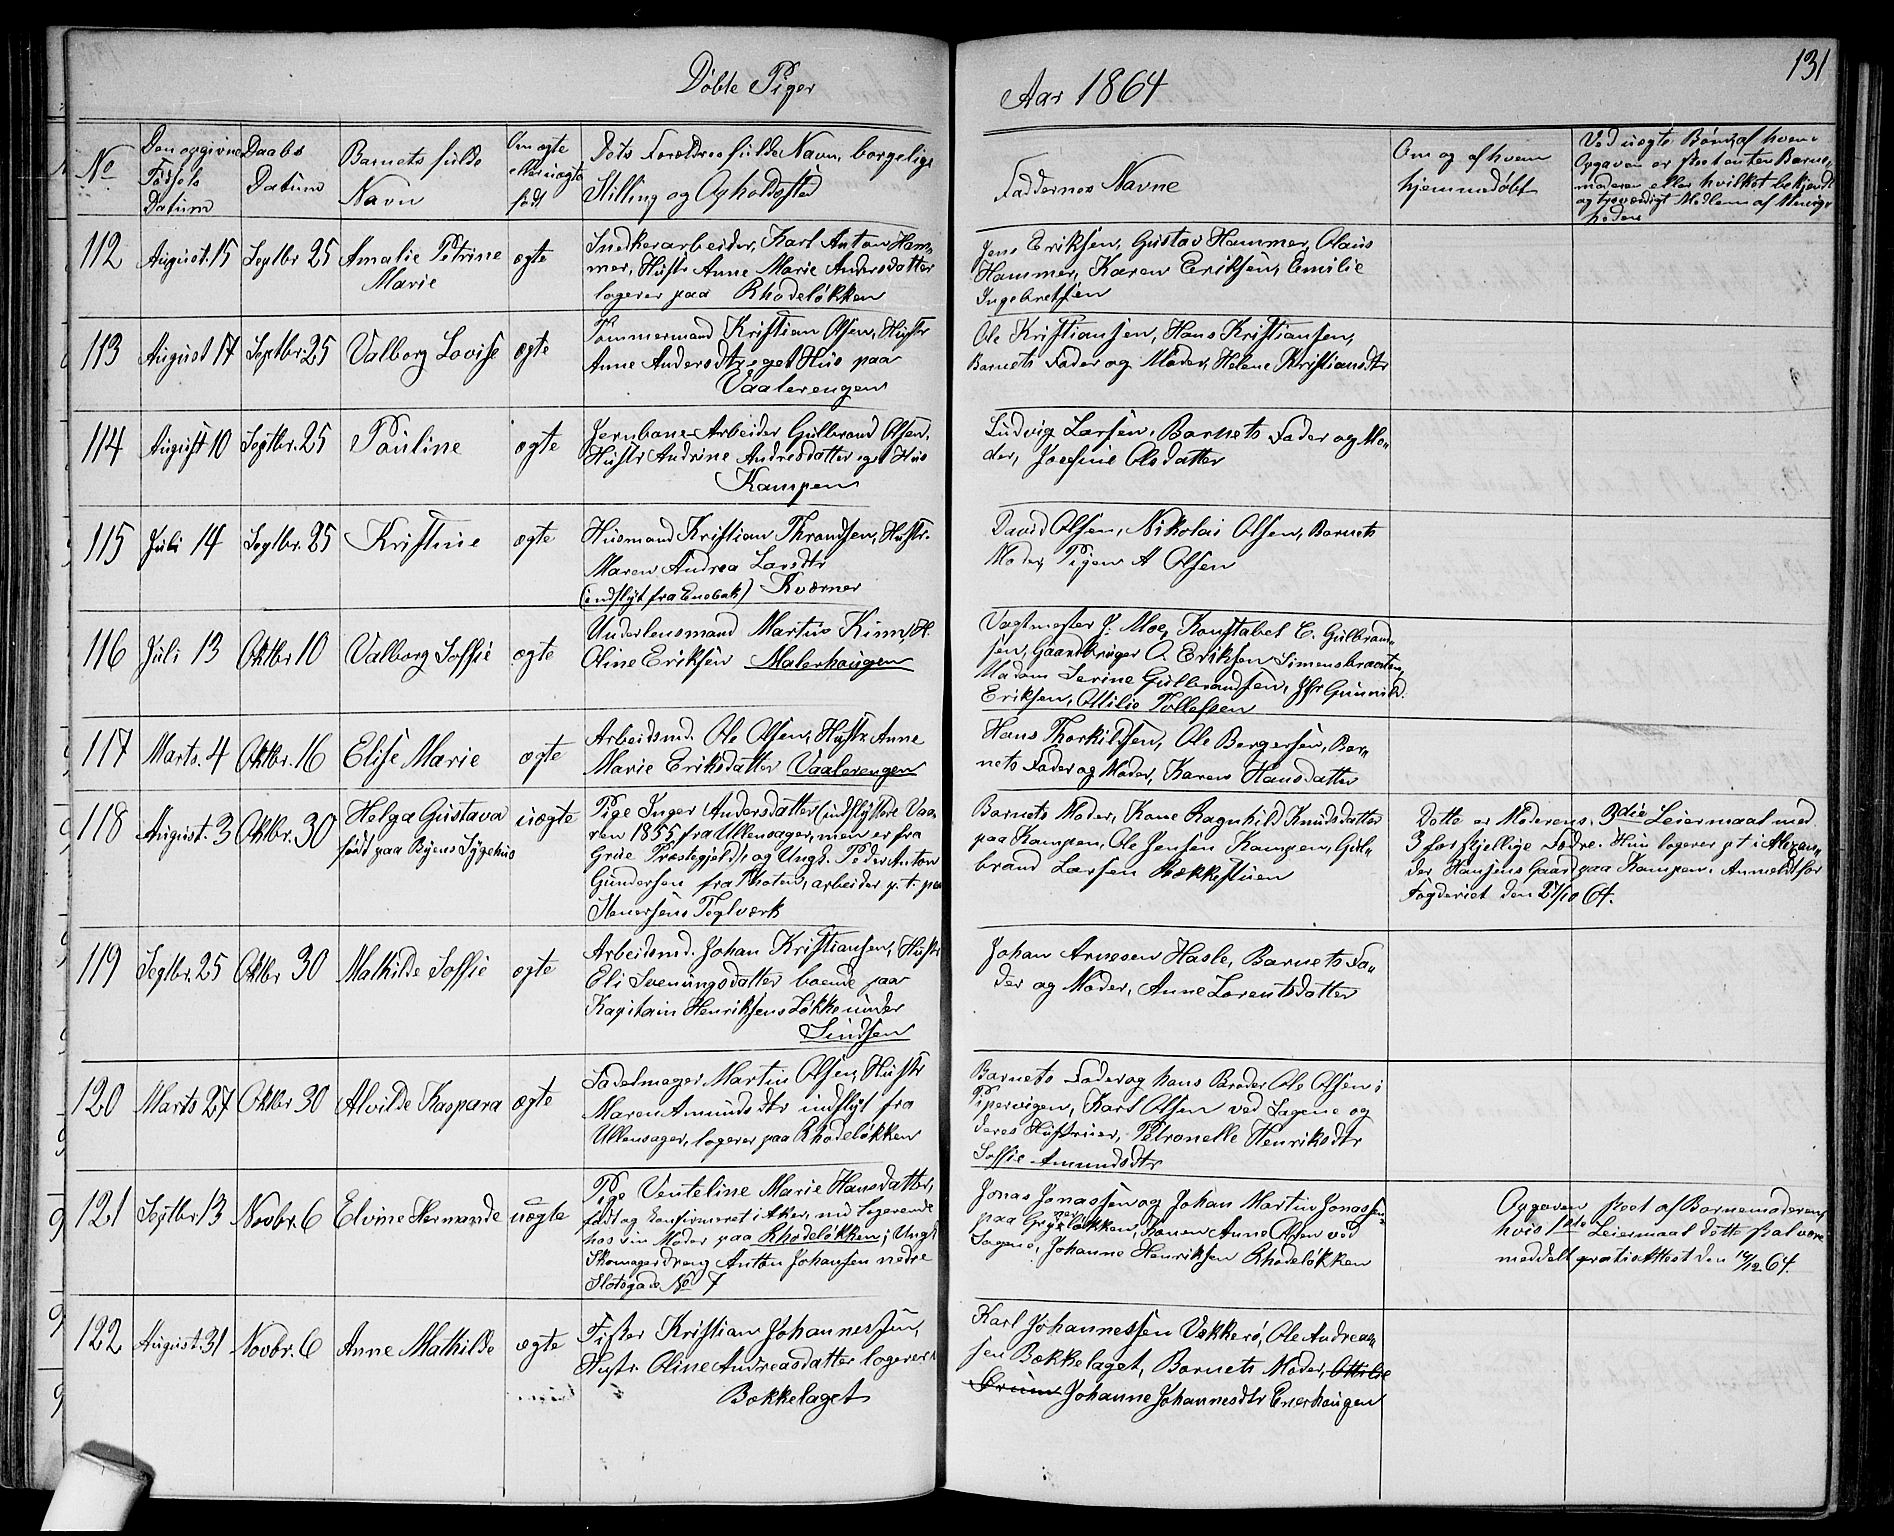 131
Døbte Piger
Aar 1864
No
Den opgivne
Fødsels
Datum
Daabs
Datum
Barnets fulde
Navn
Om ægte
eller uægte
født
Dets Forældres fulde Navn, borgelige
Stilling og Opholdssted
Faddernes Navne
Om og af hvem
hjemmedøbt
Ved uægte Børn, af hvem
Opgaven er skeet enten Barne„
moderen eller hvilket bekjendt
og troværdigt Medlem af Menig„
heden
112
August. 15
Septbr 25
Amalie Petrine
Marie
ægte
Snedkerarbeider, Karl Anton Ham„
mer, Hustr Anne Marie Andersdatter
logerer paa Rhodeløkken
Jens Eriksen, Gustav Hammer, Olaus
Hammer, Karen Eriksen, Emilie
Ingebretsen
113
August 17
Septbr. 25
Valborg Lovise
ægte
Tømmermand Kristian Olsen, Hustr
Anne Andersdtr eget Hus paa
Vaalerengen
Ole Kristiansen, Hans Kristiansen,
Barnets Fader og Moder, Helene Kristiansdtr
114
August 10
Septbr. 25
Pauline
ægte
Jernbane Arbeider Gulbrand Olsen,
Hustr Andrine Andresdatter eget Hus
Kampen
Ludvig Larsen, Barnets Fader og Mo„
der, Josefine Olsdatter
115
Juli 14
Septbr. 25
Kristine
ægte
Husmand Kristian Throndsen, Hustr.
Maren Andrea Larsdtr
(indflyt fra Enebak) Kværner
David Olsen, Nikolai Olsen, Barnets
Moder, Pigen A Olsen
116
Juli 13
Oktbr 10
Valborg Soffie
ægte
Underlensmand Martius Kinn, H.
Oline Eriksen Malerhaugen
Vagtmester J. Moe, Konstabel E. Gulbrand„
sen, Gaardbruger O. Eriksen Simensbraaten,
Madam Serine Gulbrandsen, Jfr Gunnild
Eriksen, Otilie Tollefsen
117
Marts. 4
Oktbr. 16
Elise Marie
ægte
Arbeidsmd. Ole Olsen, Hustr Anne
Marie Eriksdatter Vaalerengen
Hans Thorkildsen, Ole Bergersen, Bar„
nets Fader og Moder, Karen Hansdatter
118
August. 3
Oktbr. 30
Helga Gustava
født paa Byens Sygehus
uægte
Pige Inger Andersdatter (indflyttede Vaa„
ren 1855 fra Ullensager, men er fra
Grue Præstegjeld) og Ungk. Peder Anton
Gundersen fra Thoten, arbeider p. t. paa
Stenersens Teglværk
Barnets Moder, Kone Ragnhild Knudsdatter
paa Kampen, Ole Jensen Kampen, Gul„
brand Larsen Bækkestuen
Dette er Moderens 3die Leiermaal med
3 forskjellige Fædre. Hun logerer pt i Alexan„
der Hansens Gaard paa Kampen. Anmeldt for
Fogderiet den 27/10 64.
119
Septbr. 25
Oktbr 30
Mathilde Soffie
ægte
Arbeidsmd. Johan Kristiansen, Hustr
Eli Svenungsdatter boende paa
Kapitain Henriksens Løkke under
Sindsen
Johan Arnesen Hasle, Barnets Fa„
der og Moder, Anne Lorentsdatter
120
Marts 27
Oktbr 30
Alvilde Kaspara
ægte
Sadelmager Martin Olsen, Hustr
Maren Amundsdtr indflyt fra
Ullensager, logerer paa Rhodeløkken
Barnets Fader og hans Broder Ole Olsen i
Pipervigen, Karl Olsen ved Sagene og
deres Hustruer, Petronelle Henriksdtr
Soffie Amundsdtr
121
Septbr. 13
Novbr. 6
Elvine Hermande
uægte
Pige Venteline Marie Hansdatter,
født og konfirmeret i Aker, nu logerende
hos sin Moder paa Rhodeløkken; Ungk
Skomagerdreng Anton Johansen nedre
Slotsgade No 7
Jonas Jonassen og Johan Martin Jonassen
paa Grünerløkken, Konen Anne Olsen ved
Sagene, Johanne Henriksen Rhodeløkken
Opgaven skeet af Barnemoderen,
hvis 1ste Leiermaal dette skal være
meddelt gratis Attest den 14/12 64.
122
August. 31
Novbr. 6
Anne Mathilde
ægte
Fisker Kristian Johannessen,
Hustr Oline Andreasdatter logerer
Bækkelaget
Karl Johannessen Vækkerø, Ole Andrea„
sen Bækkelaget, Barnets Moder, Ottilie
Johanne Johannesdtr Enerhaugen